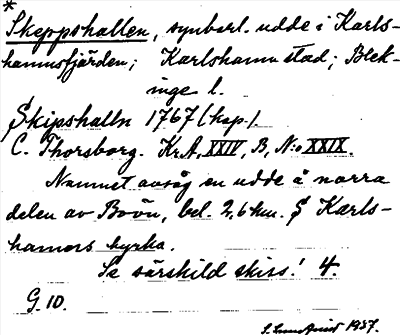 *
Skeppshallen, synbarl. udde i Karls-
hamnsfjärden; Karlshamn stad; Blek-
inge l.
Skipshalln 1767 (kop.).
C. Thorsborg. Kr.A, XXIV, B, N:o XXIX.
Namnet avsåg en udde å norra
delen av Boön, bel. 2,6 km. S Karls-
hamns kyrka.
Se särskild skiss! 4.
G. 10.
1937.